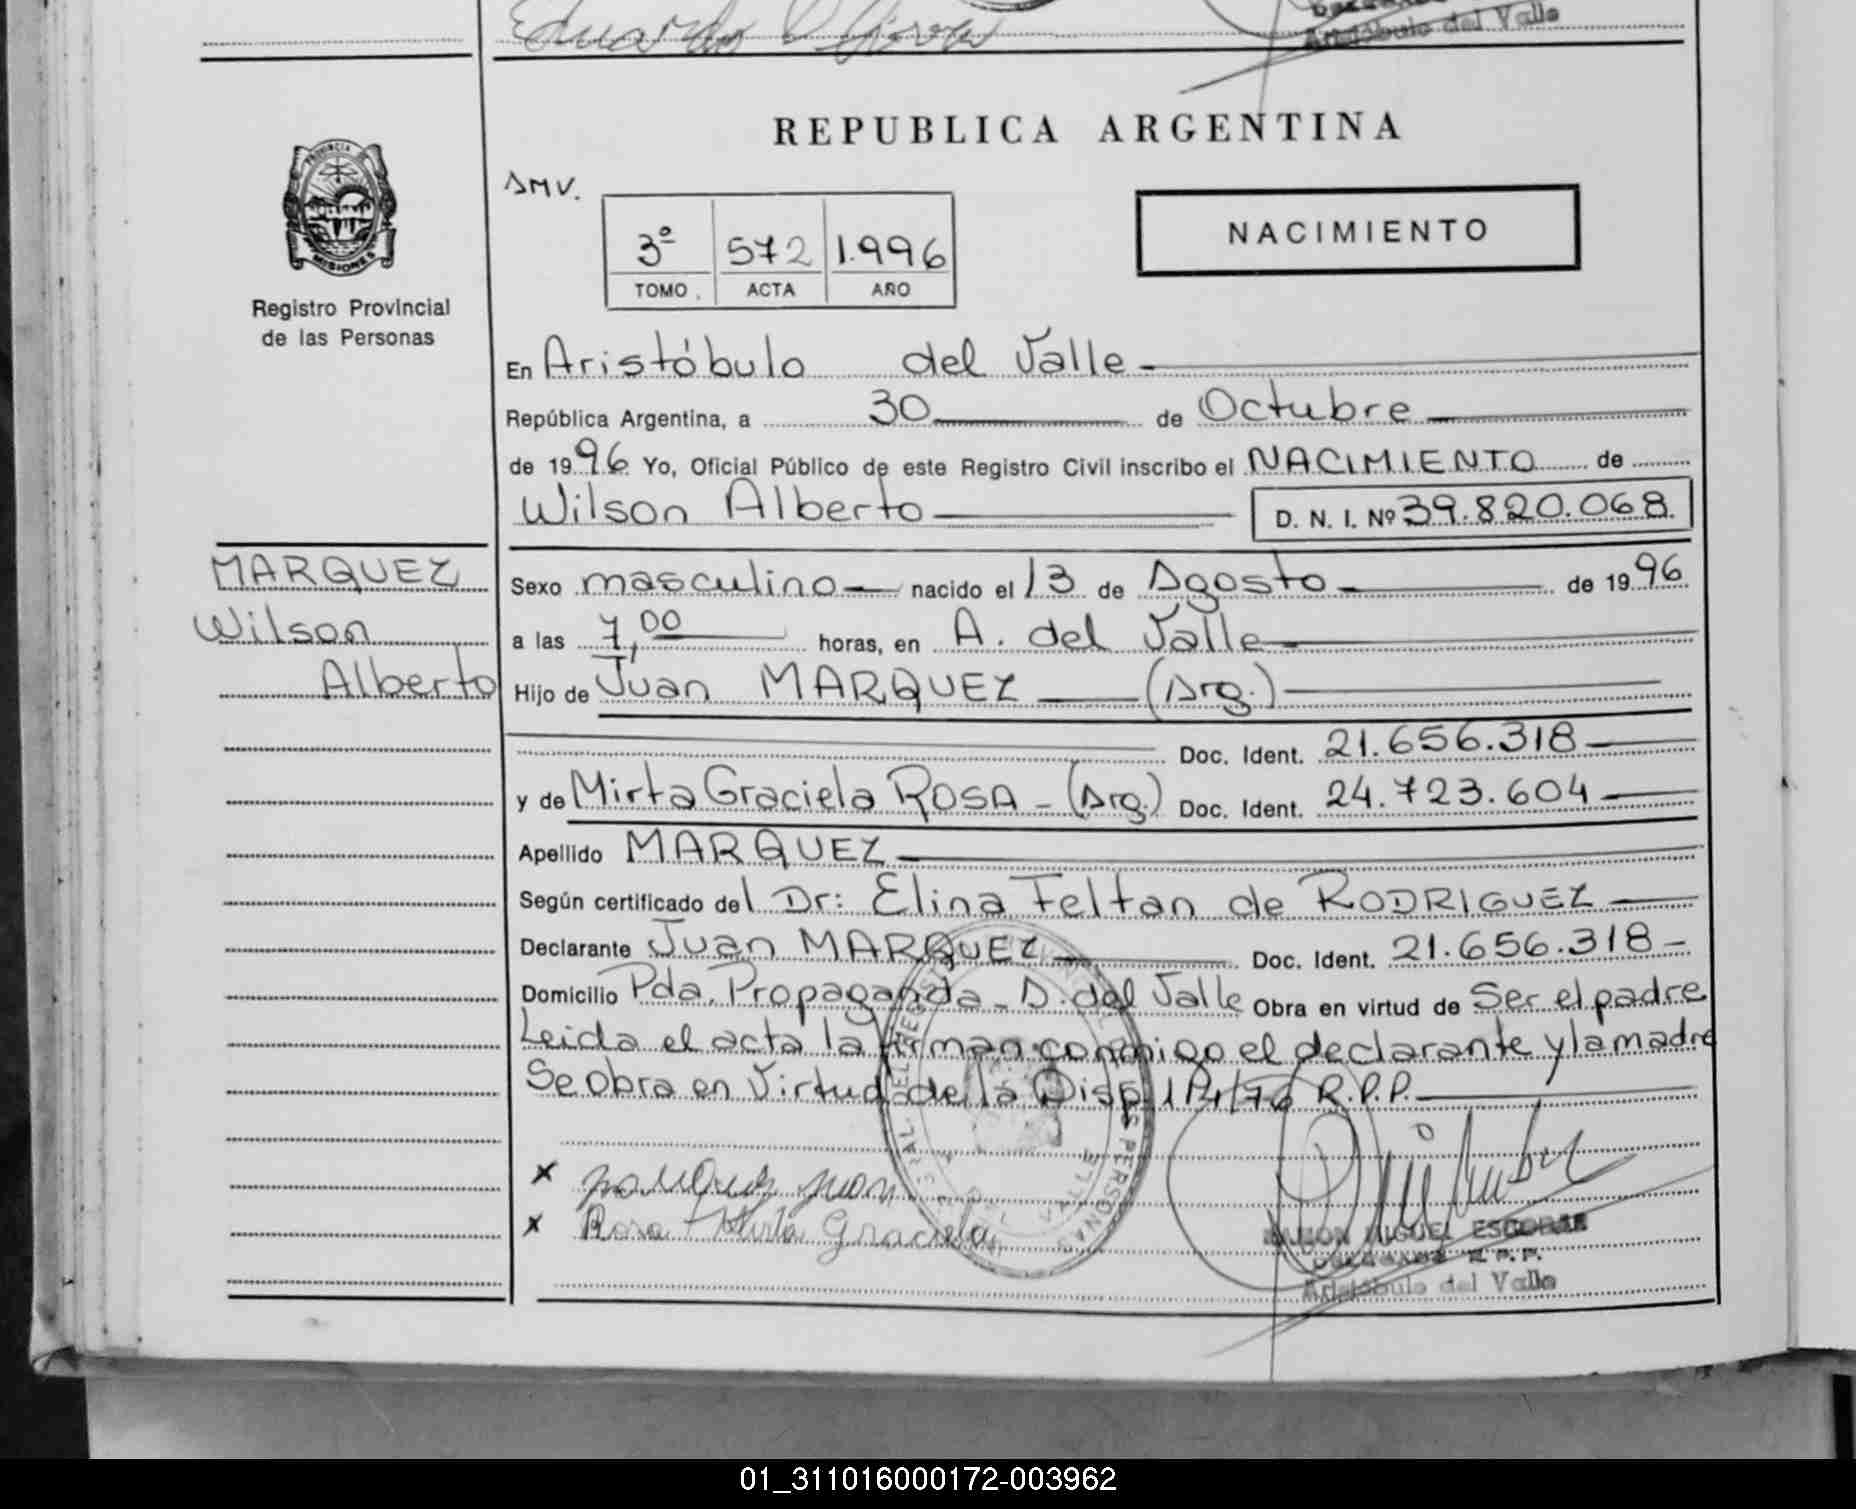 Aristóbulo del Valle
REPUBLICA ARGENTINA
PROVINCIA DE
MISIONES
Registro Provincial
de las Personas
AMV.
NACIMIENTO
3º 572 1.996
TOMO ACTA AÑO
En Aristóbulo del Valle
República Argentina, a 30 de Octubre
de 1996 Yo, Oficial Público de este Registro Civil inscribo el NACIMIENTO de
Wilson Alberto D. N. I. Nº 39.820.068
MARQUEZ
Wilson
Alberto
Sexo masculino nacido el 13 de Agosto de 1996
a las 7,00 horas, en A. del Valle
Hijo de Juan MARQUEZ (Arg.)
Doc. Ident. 21.656.318
y de Mirta Graciela ROSA - (Arg.) Doc. Ident. 24.723.604
Apellido MARQUEZ
Según certificado del Dr: Elina Feltan de RODRIGUEZ
Declarante Juan MARQUEZ Doc. Ident. 21.656.318
Domicilio Pda. Propaganda - A. del Valle Obra en virtud de Ser el padre
Leida el acta la firman conmigo el declarante y la madre
Se obra en Virtud de la Disp. R.P.P.
x Marquez Juan
x Rosa Mirta Graciela
MIGUEL ESCOBAR
R.P.P.
Aristóbulo del Valle
01_311016000172-003962